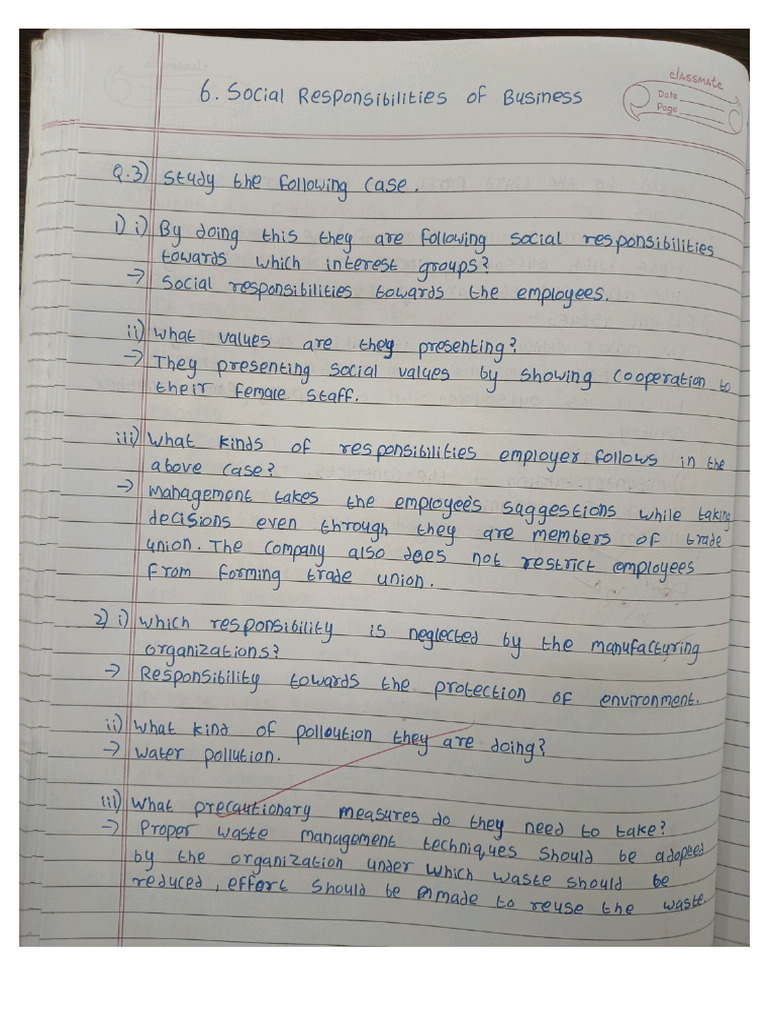 classmate
Date
Page
6. Social Responsibilities of Business
Q.3) Study the following case.
1) i) By doing this they are following social responsibilities
towards which interest groups?
→ Social responsibilities towards the employees.
ii) What values are they presenting?
→ They presenting social values by showing cooperation to
their female staff.
iii) What kinds of responsibilities employer follows in the
above case?
→ Management takes the employee's saggestions while taking
decisions even through they are members of trade
union. The company also does not restrict employees
from forming trade union.
2) i) Which responsibility is neglected by the manufacturing
organizations?
→ Responsibility towards the protection of environment.
ii) What kind of polloution they are doing?
→ Water pollution.
iii) What precautionary measures do they need to take?
→ Proper waste management techniques should be adopeed
by the organization under which waste should be
reduced, effort should be made to reuse the waste.